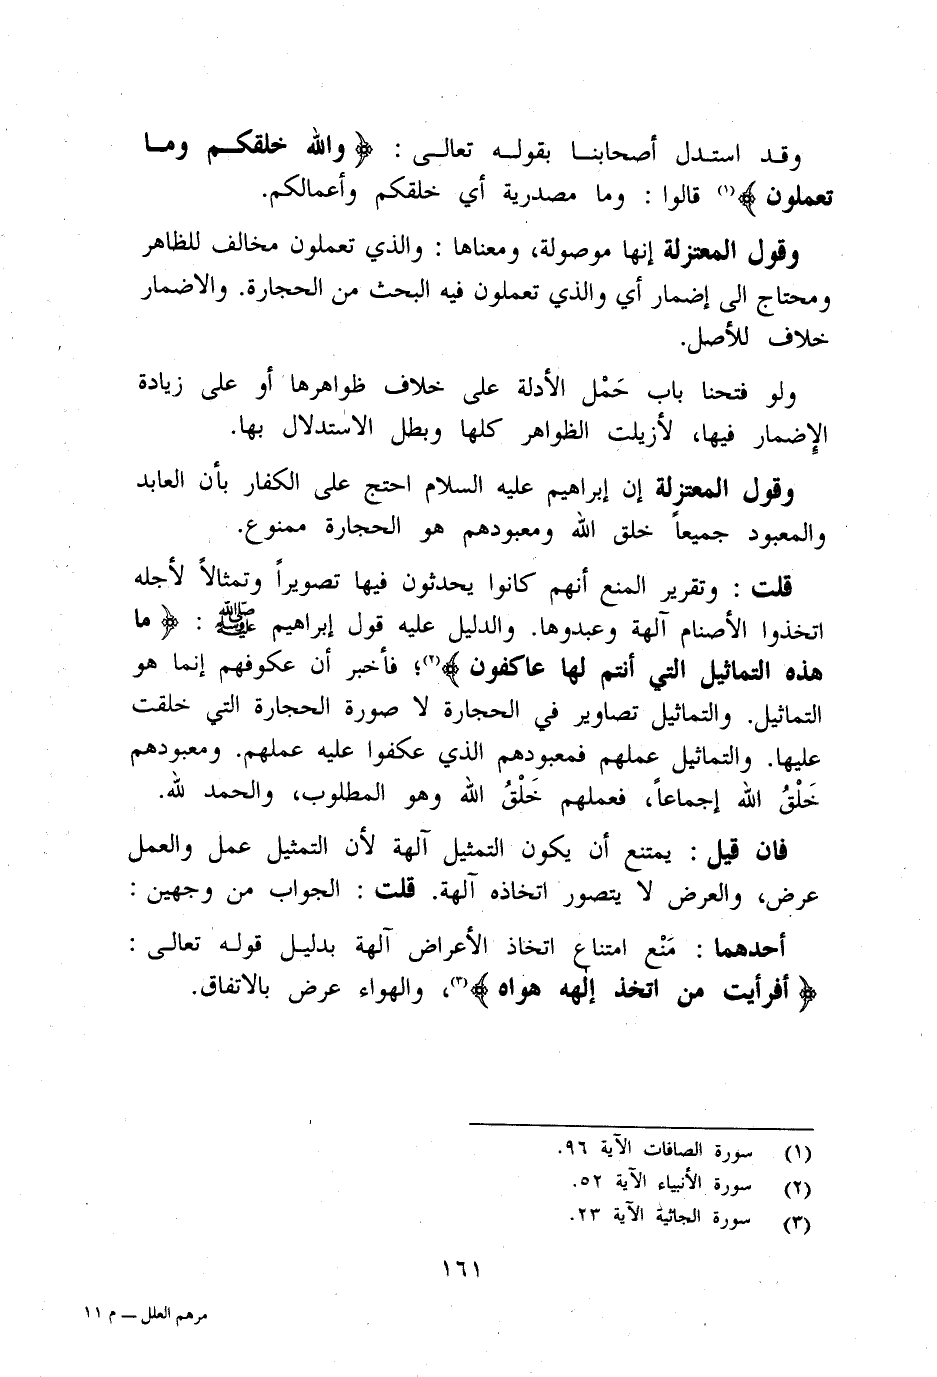 وقد استدل أصحابنا بقوله تعالى : ﴿ والله خلقكم وما
تعملون ﴾(١) قالوا : وما مصدرية أي خلقكم وأعمالكم.
وقول المعتزلة إنها موصولة، ومعناها : والذي تعملون مخالف للظاهر
ومحتاج الى إضمار أي والذي تعملون فيه البحث من الحجارة. والاضمار
خلاف للأصل.
ولو فتحنا باب حَمْل الأدلة على خلاف ظواهرها أو على زيادة
الإِضمار فيها، لأزيلت الظواهر كلها وبطل الاستدلال بها.
وقول المعتزلة إن إبراهيم عليه السلام احتج على الكفار بأن العابد
والمعبود جميعاً خلق الله ومعبودهم هو الحجارة ممنوع.
قلت : وتقرير المنع أنهم كانوا يحدثون فيها تصويراً وتمثالاً لأجله
اتخذوا الأصنام آلهة وعبدوها. والدليل عليه قول إبراهيم ﷺ : ﴿ ما
هذه التماثيل التي أنتم لها عاكفون ﴾(٢)؛ فأخبر أن عكوفهم إنما هو
التماثيل. والتماثيل تصاوير في الحجارة لا صورة الحجارة التي خلقت
عليها. والتماثيل عملهم فمعبودهم الذي عكفوا عليه عملهم. ومعبودهم
خَلْقُ الله إجماعاً، فعملهم خَلْقُ الله وهو المطلوب، والحمد لله.
فان قيل : يمتنع أن يكون التمثيل آلهة لأن التمثيل عمل والعمل
عرض، والعرض لا يتصور اتخاذه آلهة. قلت : الجواب من وجهين :
أحدهما : مَنْع امتناع اتخاذ الأعراض آلهة بدليل قوله تعالى :
﴿ أفرأيت من اتخذ إلهه هواه ﴾(٣)، والهواء عرض بالاتفاق.
(١) سورة الصافات الآية ٩٦.
(٢) سورة الأنبياء الآية ٥٢.
(٣) سورة الجاثية الآية ٢٣.
١٦١
مرهم العلل ــ م ١١